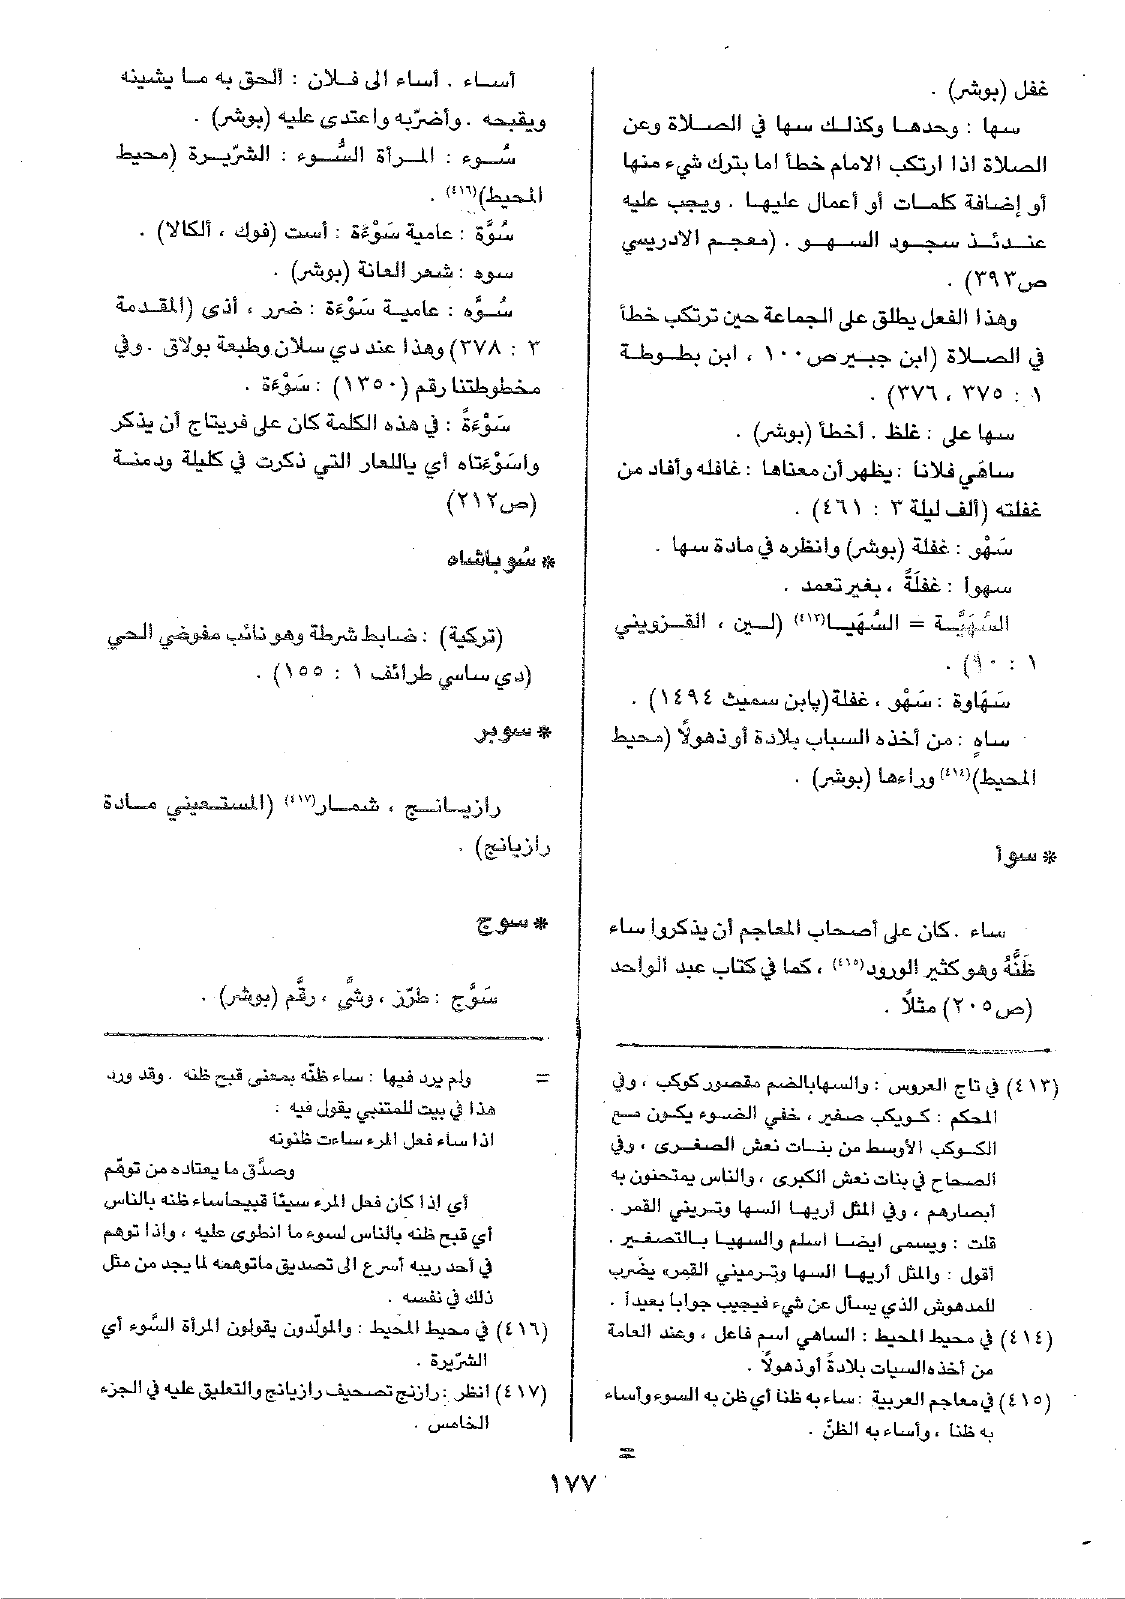 غفل (بوشر) .
سها : وحدها وكذلك سها في الصلاة وعن
الصلاة اذا ارتكب الامام خطأ اما بترك شيء منها
أو إضافة كلمات أو أعمال عليها . ويجب عليه
عندئذ سجود السهو . (معجم الادريسي
ص٣٩٣) .
وهذا الفعل يطلق على الجماعة حين ترتكب خطأ
في الصلاة (ابن جبير ص١٠٠ ، ابن بطوطة
١ : ٣٧٥ ، ٣٧٦) .
سها على : غلظ . أخطأ (بوشر) .
ساهَي فلاناً : يظهر أن معناها : غافله وأفاد من
غفلته (ألف ليلة ٣ : ٤٦١) .
سَهْو : غفلة (بوشر) وانظره في مادة سها .
سهواً : غفلَةً ، بغير تعمد .
السُّهَيَّة = السُّهَيا(٤١٣) (لين ، القزويني
١ : ٩٠) .
سَهَاوة : سَهْو ، غفلة (پابن سميث ١٤٩٤) .
ساهٍ : من أخذه السباب بلادة أو ذهولًا (محيط
المحيط)(٤١٤) وراءها (بوشر) .
* سوأ
ساء . كان على أصحاب المعاجم أن يذكروا ساء
ظَنَّهُ وهو كثير الورود(٤١٥) ، كما في كتاب عبد الواحد
(ص٢٠٥) مثلاً .
(٤١٣) في تاج العروس : والسها بالضم مقصور كوكب ، وفي
المحكم : كويكب صغير ، خفي الضوء يكون مع
الكوكب الأوسط من بنات نعش الصغرى ، وفي
الصحاح في بنات نعش الكبرى ، والناس يمتحنون به
أبصارهم ، وفي المثل أريها السها وتريني القمر .
قلت : ويسمى ايضاً اسلم والسهيا بالتصغير .
أقول : والمثل أريها السها وترميني القمر» يضرب
للمدهوش الذي يسأل عن شيء فيجيب جواباً بعيداً .
(٤١٤) في محيط المحيط : الساهي اسم فاعل ، وعند العامة
من أخذه السبات بلادةً أو ذهولاً .
(٤١٥) في معاجم العربية : ساء به ظناً أي ظن به السوء وأساء
به ظناً ، وأساء به الظنّ .
=
أساء . أساء الى فلان : ألحق به ما يشينه
ويقبحه . وأضرّبه واعتدى عليه (بوشر) .
سُوء : المرأة السُّوء : الشرّيرة (محيط
المحيط)(٤١٦) .
سُوَّة : عامية سَوْءَة : أست (فوك ، ألكالا) .
سوه : شعر العانة (بوشر) .
سُوَّه : عامية سَوْءَة : ضرر ، أذى (المقدمة
٣ : ٣٧٨) وهذا عند دي سلان وطبعة بولاق . وفي
مخطوطتنا رقم (١٣٥٠) : سَوْءَة .
سَوْءَةً : في هذه الكلمة كان على فريتاج أن يذكر
واسَوْءَتاه أي ياللعار التي ذكرت في كليلة ودمنة
(ص٢١٢)
* سُوباشاه
(تركية) : ضابط شرطة وهو نائب مفوضي الحي
(دي ساسي طرائف ١ : ١٥٥) .
* سوبر
رازيانج ، شمار(٤١٧) (المستعيني مادة
رازيانج) .
* سوج
سَوَّج : طرّز ، وشىَّ ، رقَّم (بوشر) .
= ولم يرد فيها : ساء ظنّه بمعنى قبح ظنه . وقد ورد
هذا في بيت للمتنبي يقول فيه :
اذا ساء فعل المرء ساءت ظنونه
وصدَّق ما يعتاده من توهّم
أي اذا كان فعل المرء سيئاً قبيحاً ساء ظنه بالناس
أي قبح ظنه بالناس لسوء ما انطوى عليه ، واذا توهم
في أحد ريبه أسرع الى تصديق ماتوهمه لما يجد من مثل
ذلك في نفسه .
(٤١٦) في محيط المحيط : والمولّدون يقولون المرأة السَّوء أي
الشرّيرة .
(٤١٧) انظر : رازنج تصحيف رازيانج والتعليق عليه في الجزء
الخامس .
١٧٧